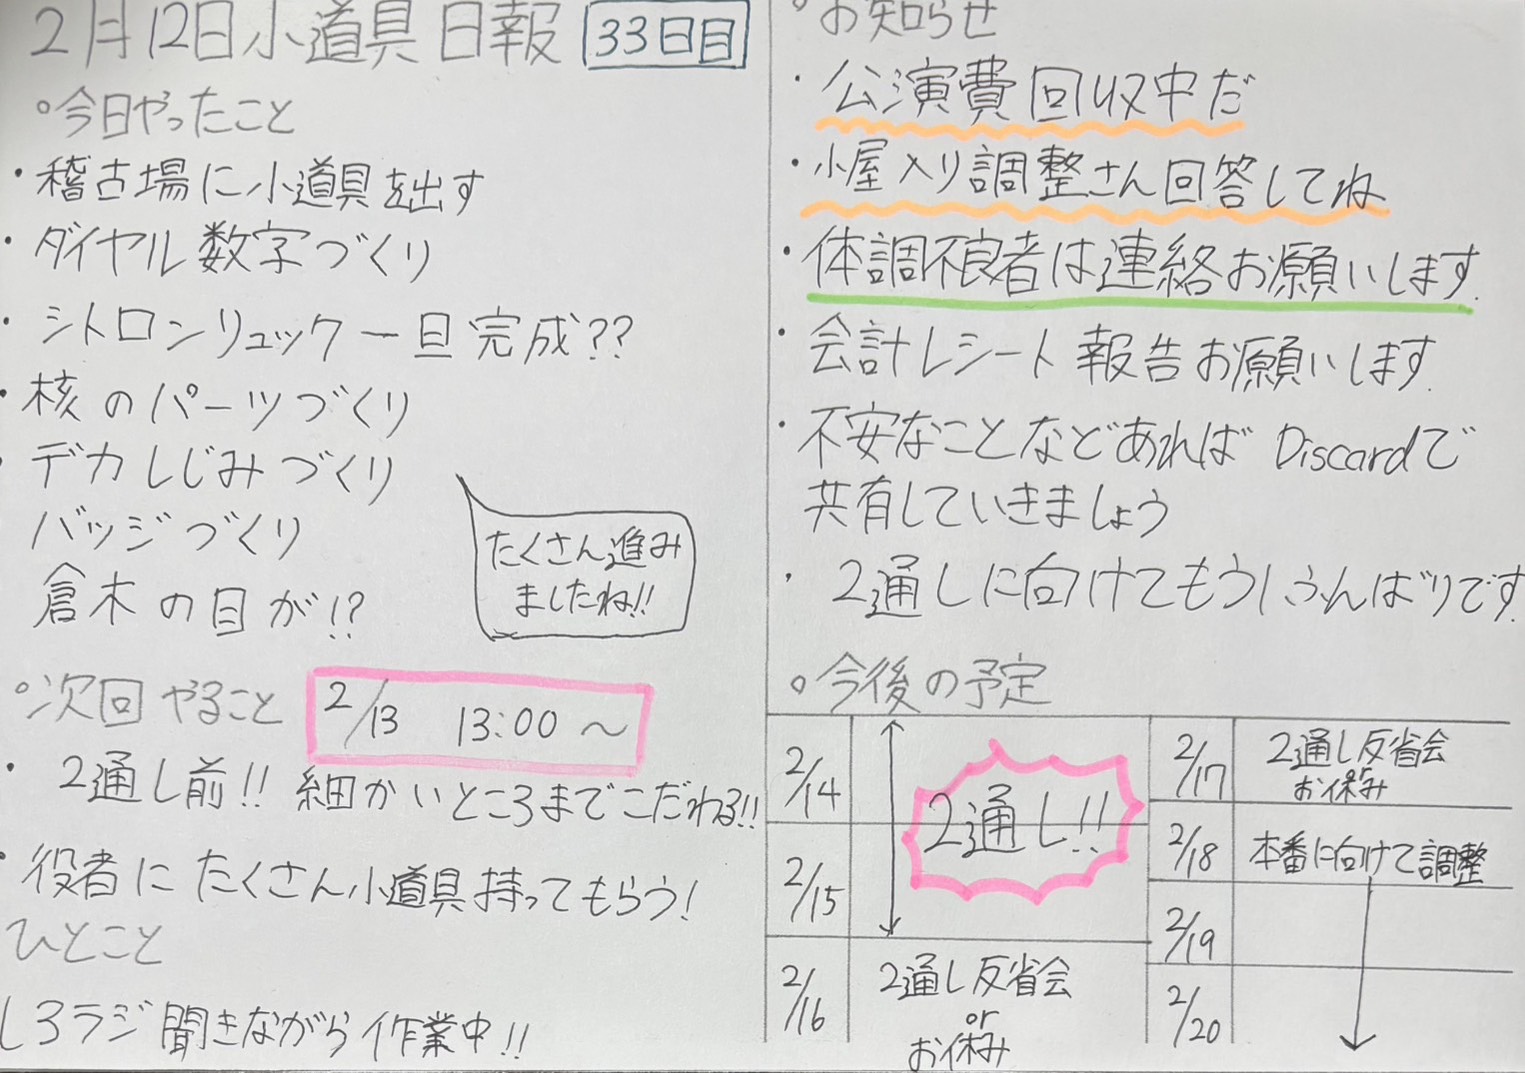 2月12日小道具日報 33日目
○今日やったこと
・稽古場に小道具を出す
・ダイヤル数字づくり
・シトロンリュック一旦完成??
・核のパーツづくり
・デカしじみづくり
バッジづくり
倉木の目が!?
たくさん進み
ましたね!!
○次回やること 2/13 13:00〜
・2通し前!! 細かいところまでこだわる!!
・役者にたくさん小道具持ってもらう!
ひとこと
しろラジ聞きながら作業中!!
○お知らせ
・公演費回収中だ
・小屋入り調整さん回答してね
・体調不良者は連絡お願いします.
・会計レシート報告お願いします.
・不安なことなどあればDiscardで
共有していきましょう
・2通しに向けてもうひふんばりです.
○今後の予定
2/14
2通し!!
2/15
2/16 2通し反省会
or
お休み
2/17 2通し反省会
or
お休み
2/18 本番に向けて調整
2/19
2/20